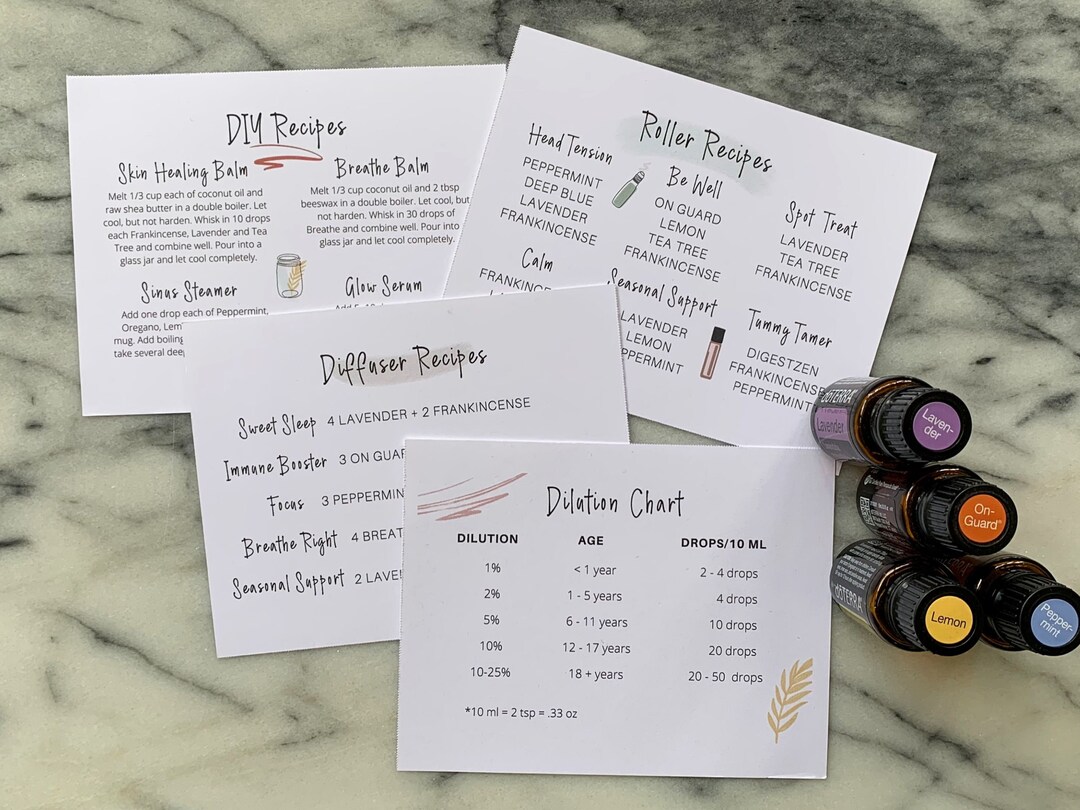 DIY Recipes
Skin Healing Balm
Melt 1/3 cup each of coconut oil and
raw shea butter in a double boiler. Let
cool, but not harden. Whisk in 10 drops
each Frankincense, Lavender and Tea
Tree and combine well. Pour into a
glass jar and let cool completely.
Breathe Balm
Melt 1/3 cup coconut oil and 2 tbsp
beeswax in a double boiler. Let cool, but
not harden. Whisk in 30 drops of
Breathe and combine well. Pour into
glass jar and let cool completely.
Sinus Steamer
Add one drop each of Peppermint,
Oregano,
mug. Add boiling
take several
Glow Serum
Roller Recipes
Head Tension
PEPPERMINT
DEEP BLUE
LAVENDER
FRANKINCENSE
Be Well
ON GUARD
LEMON
TEA TREE
FRANKINCENSE
Spot Treat
LAVENDER
TEA TREE
FRANKINCENSE
Calm
Seasonal Support
LAVENDER
LEMON
Tummy Tamer
DIGESTZEN
FRANKINCENSE
PEPPERMINT
Diffuser Recipes
Sweet Sleep 4 LAVENDER + 2 FRANKINCENSE
Immune Booster 3 ON
Focus 3
Breathe Right 4
Seasonal Support 2
Dilution Chart
DILUTION AGE DROPS/10 ML
1% < 1 year 2 - 4 drops
2% 1 - 5 years 4 drops
5% 6 - 11 years 10 drops
10% 12 - 17 years 20 drops
10-25% 18 + years 20 - 50 drops
*10 ml = 2 tsp = .33 oz
dōTERRA
Lavender
Laven-
der
On-
Guard®
dōTERRA
Lemon
Pepper-
mint